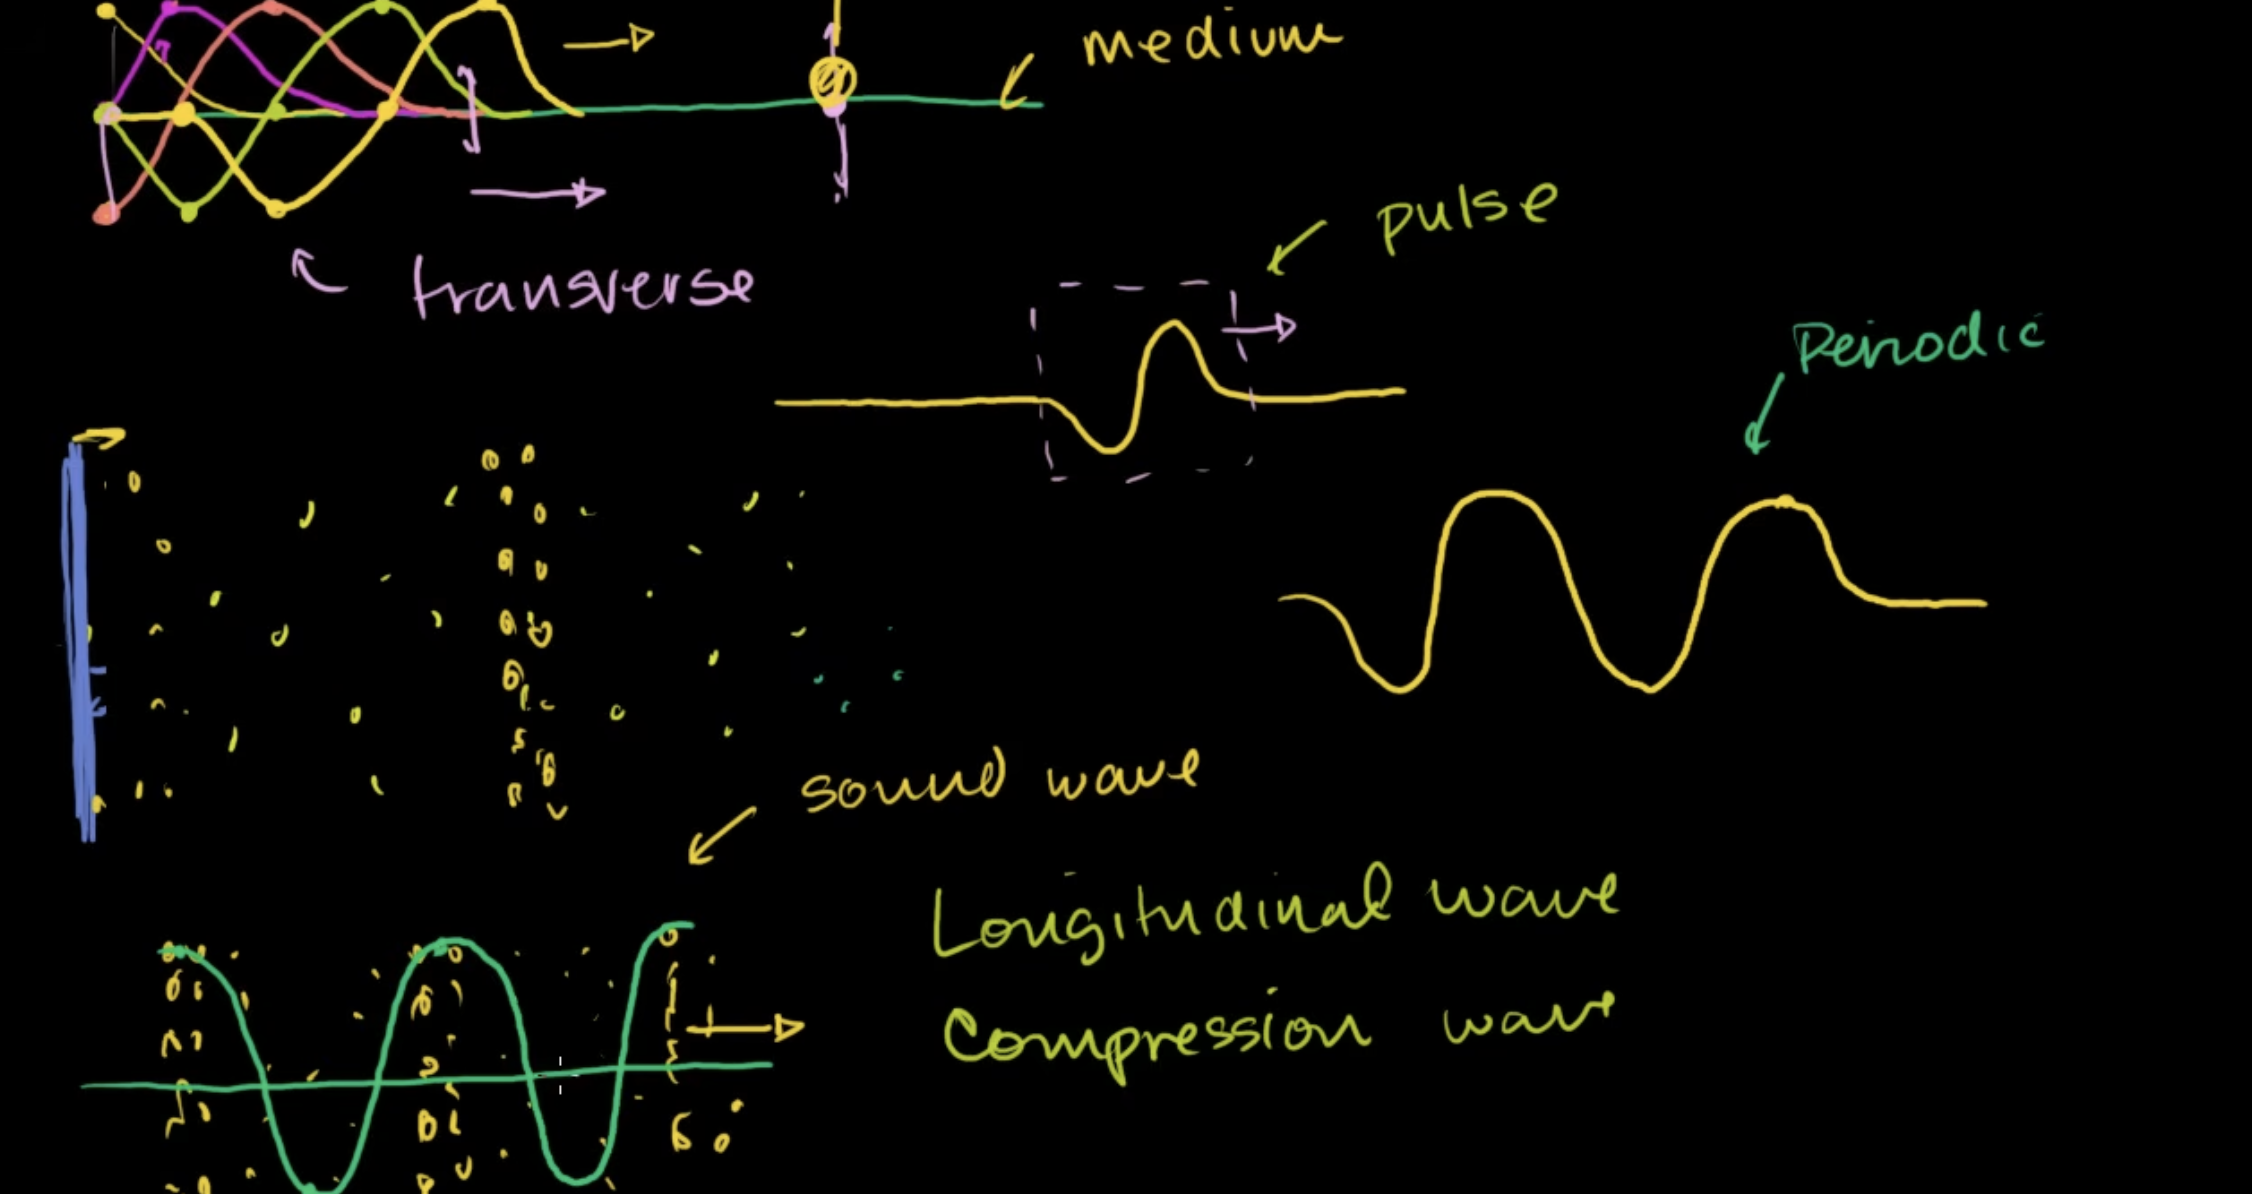 medium
pulse
transverse
Periodic
sound wave
Longitudinal wave
Compression wave